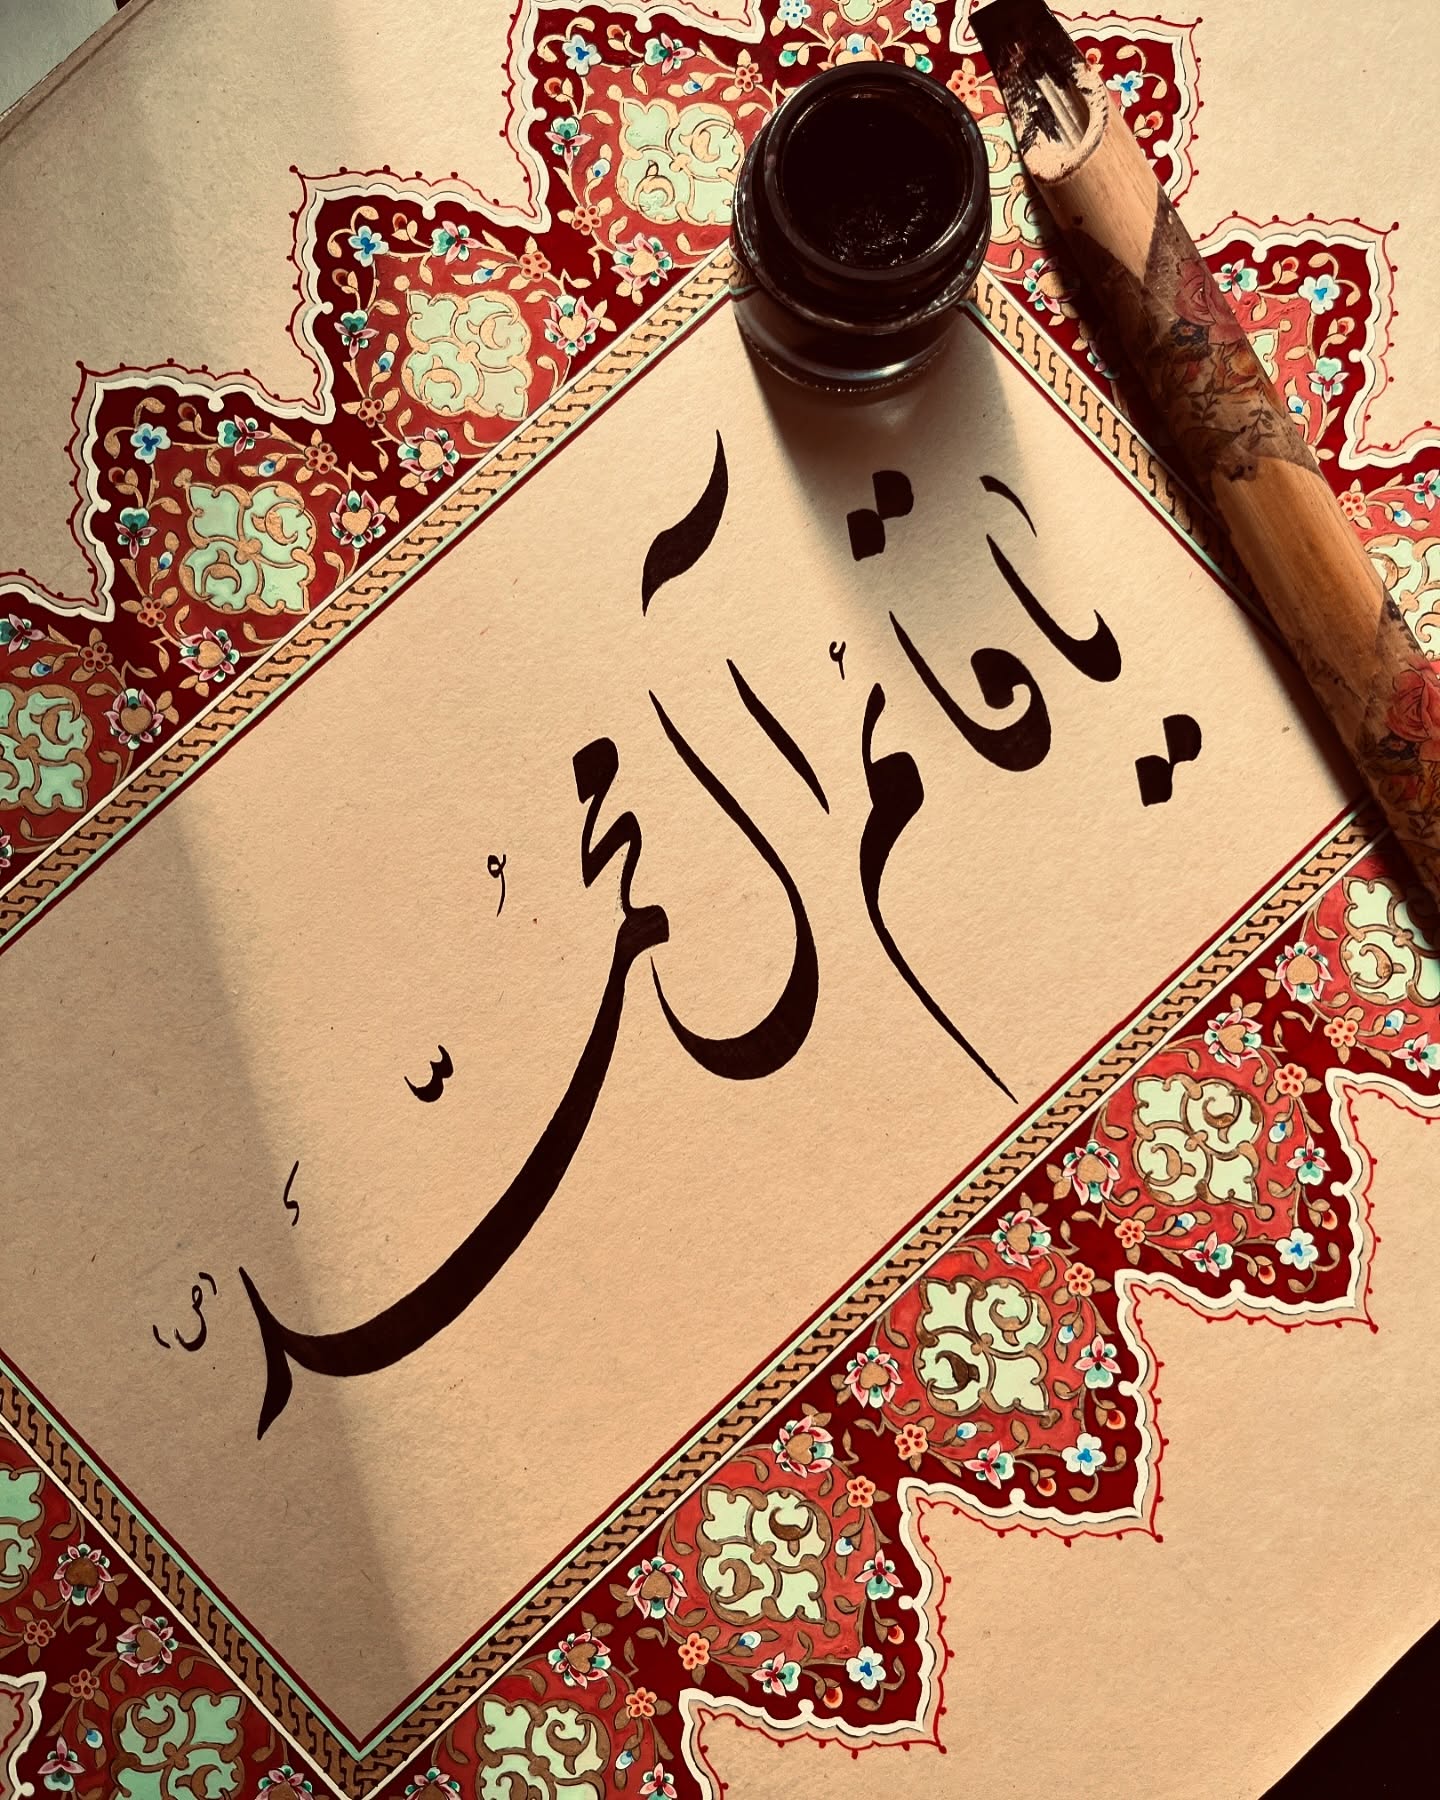 یا قائم آل محمّد ص